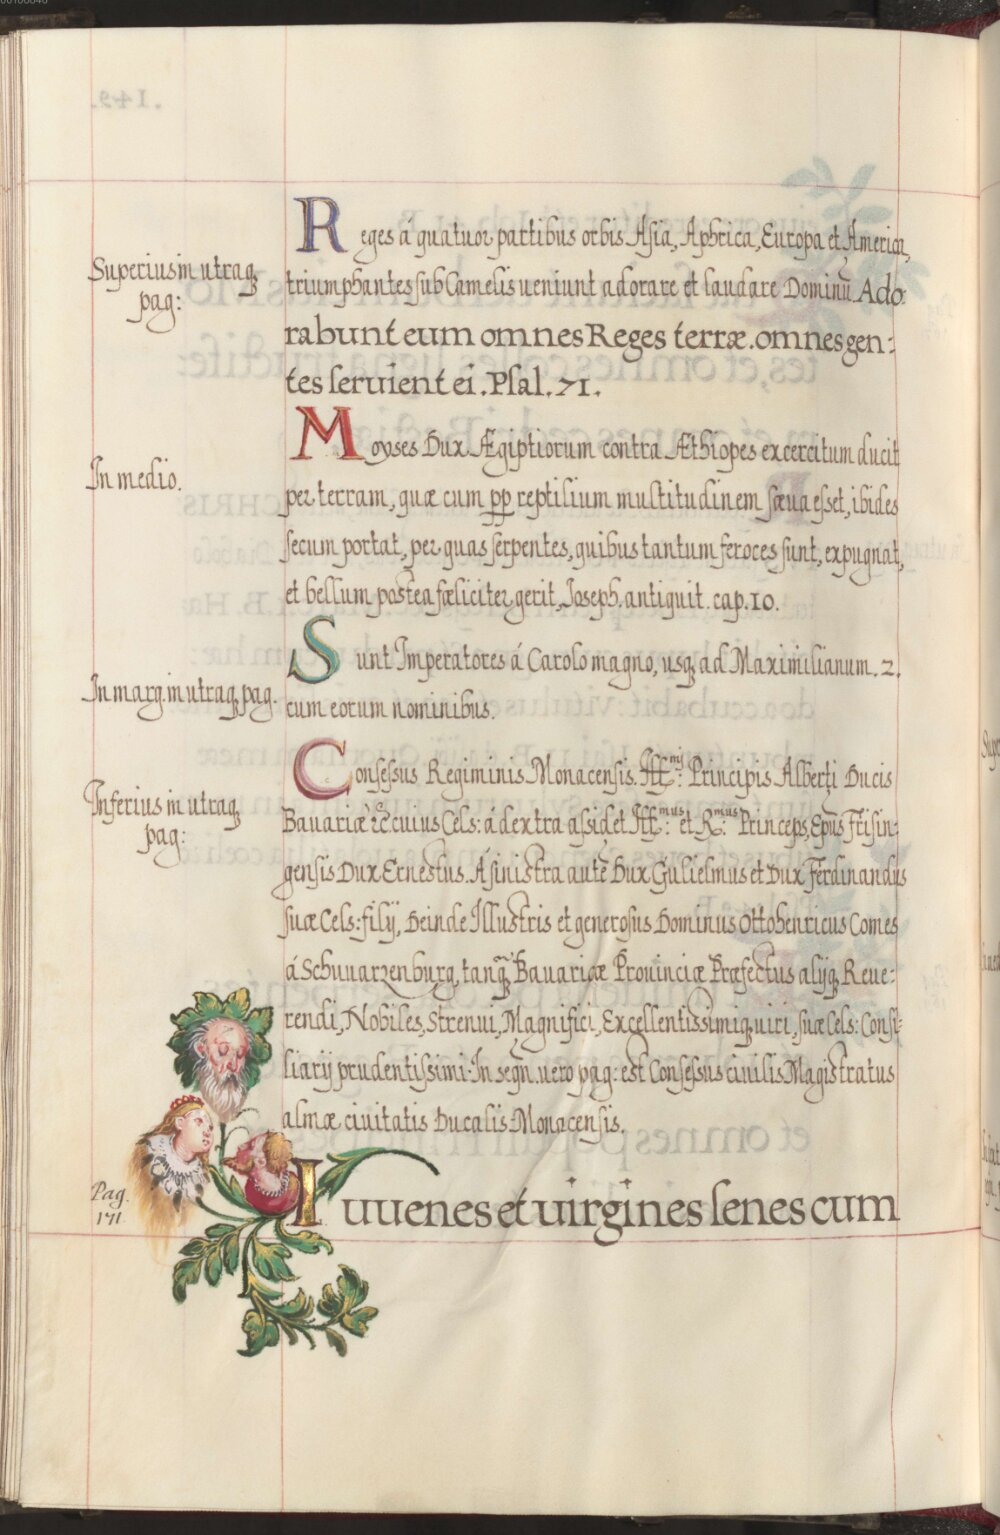 Superius in utraq;
pag:
Reges á quatuor partibus orbis Asia, Aphrica, Europa et America,
triumphantes sub Camelis ueniunt adorare et laudare Dominū Ado:
rabunt eum omnes Reges terræ. omnes gen:
tes seruient ei. Psal. 71.
In medio.
Moyses Dux Ægiptiorum contra Æthiopes excercitum ducit
per terram, quæ cum pp reptilium multitudinem sæua esset, ibides
secum portat, per quas serpentes, quibus tantum feroces sunt, expugnat,
et bellum postea fæliciter gerit, Joseph. antiquit. cap. 10.
In marg. in utraq; pag.
Sunt Imperatores á Carolo magno, usq; ad Maximilianum. 2.
cum eorum nominibus.
Inferius in utraq;
pag:
Consessus Regiminis Monacensis. Ill:mi Principis Alberti Ducis
Bauariæ &c. cuius Cels: á dextra assidet Ill:mus et R:mus Princeps, Epūs Frisin:
gensis Dux Ernestus. Á sinistra autē Dux Gulielmus et Dux Ferdinandus
suæ Cels: filij, Deinde Illustris et generosus Dominus Ottohenricus Comes
á Schuuarzenburg, tanq̄ Bauariæ Prouinciæ Præfectus alijq; Reue:
rendi, Nobiles, Strenui, Magnifici, Excellentissimiq; uiri, suæ Cels: Consi:
liarij prudentissimi. In seqn̄ uero pag: est Consessus ciuilis Magistratus
almæ ciuitatis Ducalis Monacensis.
Pag.
151.
Iuuenes et uirgines senes cum